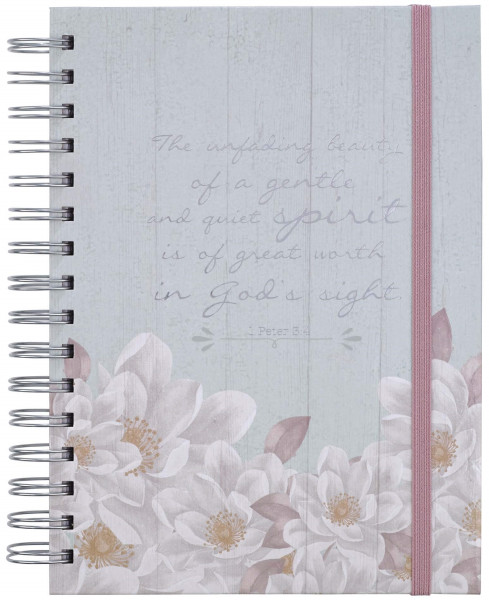 The unfading beauty
of a gentle
and quiet spirit
is of great worth
in God's sight.
1 Peter 3:4